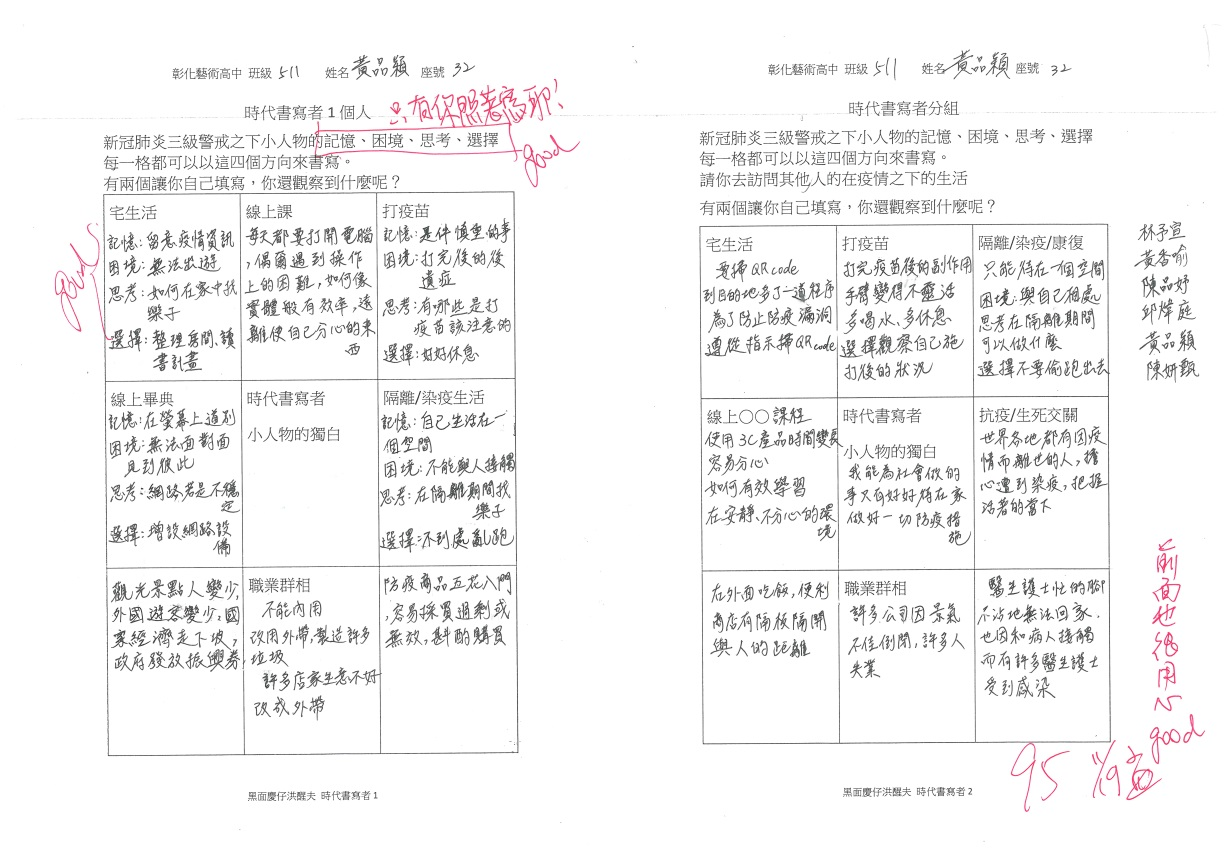 彰化藝術高中 班級 511 姓名 黃品穎 座號 32
時代書寫者1個人
只有你照著寫耶!
新冠肺炎三級警戒之下小人物的記憶、困境、思考、選擇
每一格都可以以這四個方向來書寫。
good
有兩個讓你自己填寫,你還觀察到什麼呢?
good
宅生活
記憶:留意疫情資訊
困境:無法出遊
思考:如何在家中找
樂子
選擇:整理房間、讀
書計畫
線上課
每天都要打開電腦
,偶爾遇到操作
上的困難,如何像
實體般有效率,遠
離使自己分心的東
西
打疫苗
記憶:是件慎重的事
困境:打完後的後
遺症
思考:有哪些是打
疫苗該注意的
選擇:好好休息
線上畢典
記憶:在螢幕上道別
困境:無法面對面
見到彼此
思考:網路若是不穩
定
選擇:增設網路設
備
時代書寫者
小人物的獨白
隔離/染疫生活
記憶:自己生活在一
個空間
困境:不能與人接觸
思考:在隔離期間找
樂子
選擇:不到處亂跑
觀光景點人變少,
外國遊客變少,國
家經濟走下坡,
政府發放振興券
職業群相
不能內用
改用外帶,製造許多
垃圾
許多店家生意不好
改成外帶
防疫商品五花八門
,容易採買過剩或
無效,斟酌購買
黑面慶仔洪醒夫 時代書寫者1
彰化藝術高中 班級 511 姓名 黃品穎 座號 32
時代書寫者分組
新冠肺炎三級警戒之下小人物的記憶、困境、思考、選擇
每一格都可以以這四個方向來書寫。
請你去訪問其他人的在疫情之下的生活
有兩個讓你自己填寫,你還觀察到什麼呢?
宅生活
要掃QR code
到目的地多了一道程序
為了防止防疫漏洞
遵從指示掃QR code
打疫苗
打完疫苗後的副作用
手臂變得不靈活
多喝水、多休息
選擇觀察自己施
打後的狀況
隔離/染疫/康復
只能待在一個空間
困境:與自己相處
思考在隔離期間
可以做什麼
選擇不要偷跑出去
林予宣
黃香喻
陳品妤
邱燁庭
黃品穎
陳妍甄
線上〇〇課程
使用3C產品時間變長
容易分心
如何有效學習
在安靜、不分心的環
境
時代書寫者
小人物的獨白
我能為社會做的
事只有好好待在家
做好一切防疫措
施
抗疫/生死交關
世界各地都有因疫
情而離世的人,擔
心遭到染疫,把握
活著的當下
在外面吃飯,便利
商店有隔板隔開
與人的距離
職業群相
許多公司因景氣
不佳倒閉,許多人
失業
醫生護士忙的腳
不沾地無法回家,
也因和病人接觸
而有許多醫生護士
受到感染
前面也很用心
good
95
黑面慶仔洪醒夫 時代書寫者2